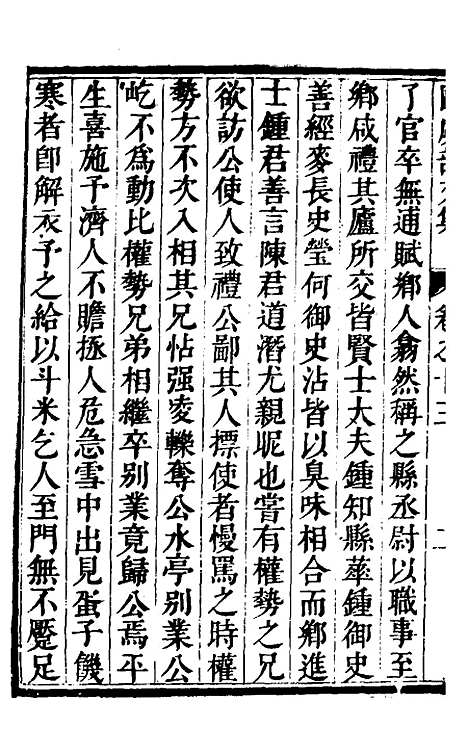 卷之十三
二
了官卒無逋賦鄉人翕然稱之縣丞尉以職事至
鄉咸禮其廬所交皆賢士大夫鍾知縣華鍾御史
善經麥長史瑩何御史沾皆以臭味相合而鄉進
士鍾君善言陳君道潛尤親昵也嘗有權勢之兄
欲訪公使人致禮公鄙其人摽使者慢罵之時權
勢方不次入相其兄怙强凌轢奪公水亭別業公
屹不爲動比權勢兄弟相繼卒別業竟歸公焉平
生喜施予濟人不贍拯人危急雪中出見蛋子饑
寒者卽解衣予之給以斗米乞人至門無不饜足